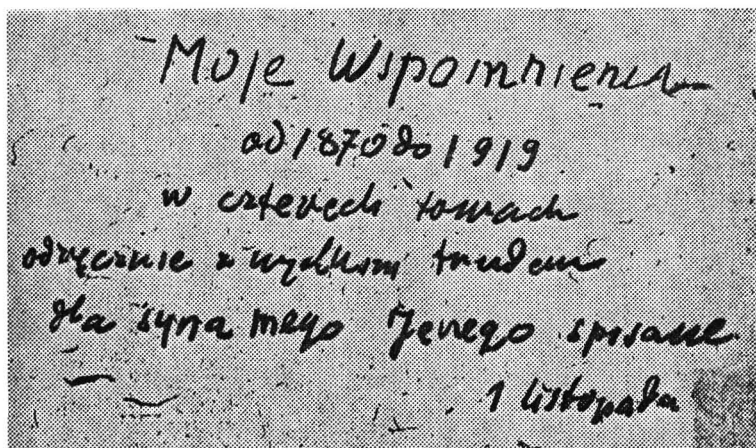 Moje Wspomnienia
od 1870 do 1919
w czterech tomach
odręcznie z wielkim trudem
dla syna mego Jerzego spisane
1 listopada